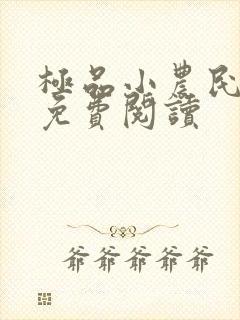 極品小農民
免費閱讀
爺爺爺爺爺